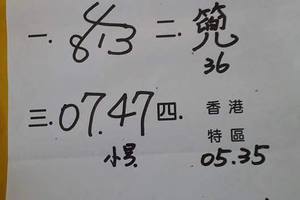 一. 8/13 二.
36
三. 07.47 四. 香港
小吳 特區
05.35